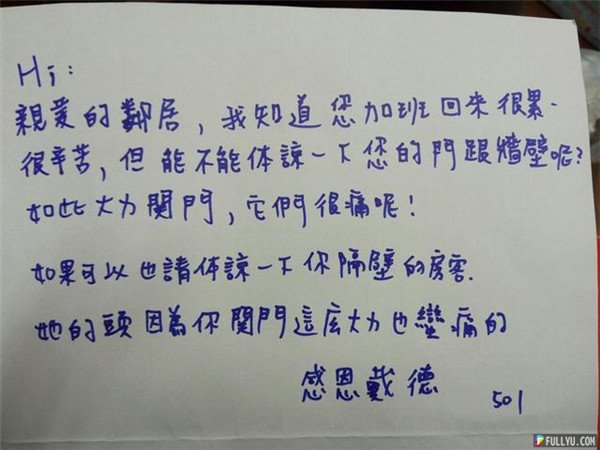 Hi:
親愛的鄰居，我知道您加班回來很累、
很辛苦，但能不能体諒一下您的門跟牆壁呢？
如此大力關門，它們很痛呢！
如果可以也請体諒一下你隔壁的房客.
她的頭因為你關門這么大力也蠻痛的
感恩戴德
501
FULLYU.COM